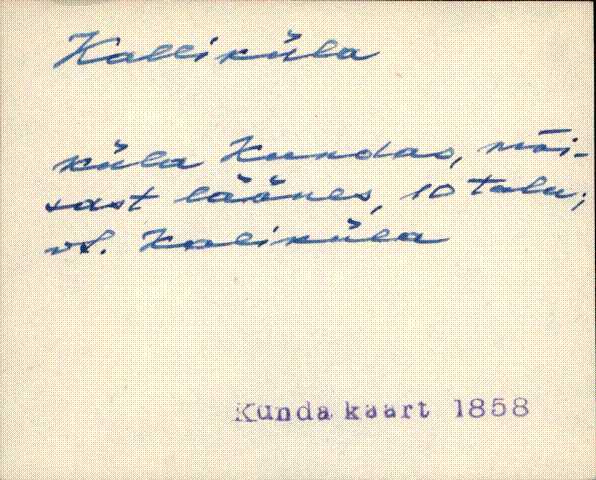 Kalliküla
küla Kundas, mõi-
sast läänes, 10 talu;
vt. Kaliküla
Kunda kaart 1858